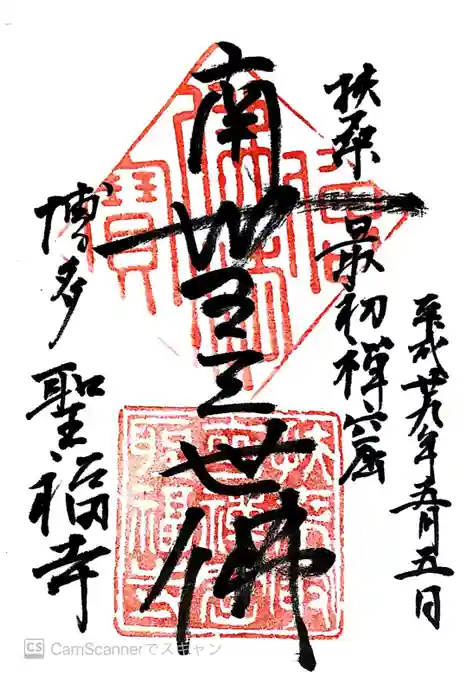 平成廿九年五月五日
扶桑最初禅窟
南無三世佛
博多 聖福寺
CS CamScannerでスキャン